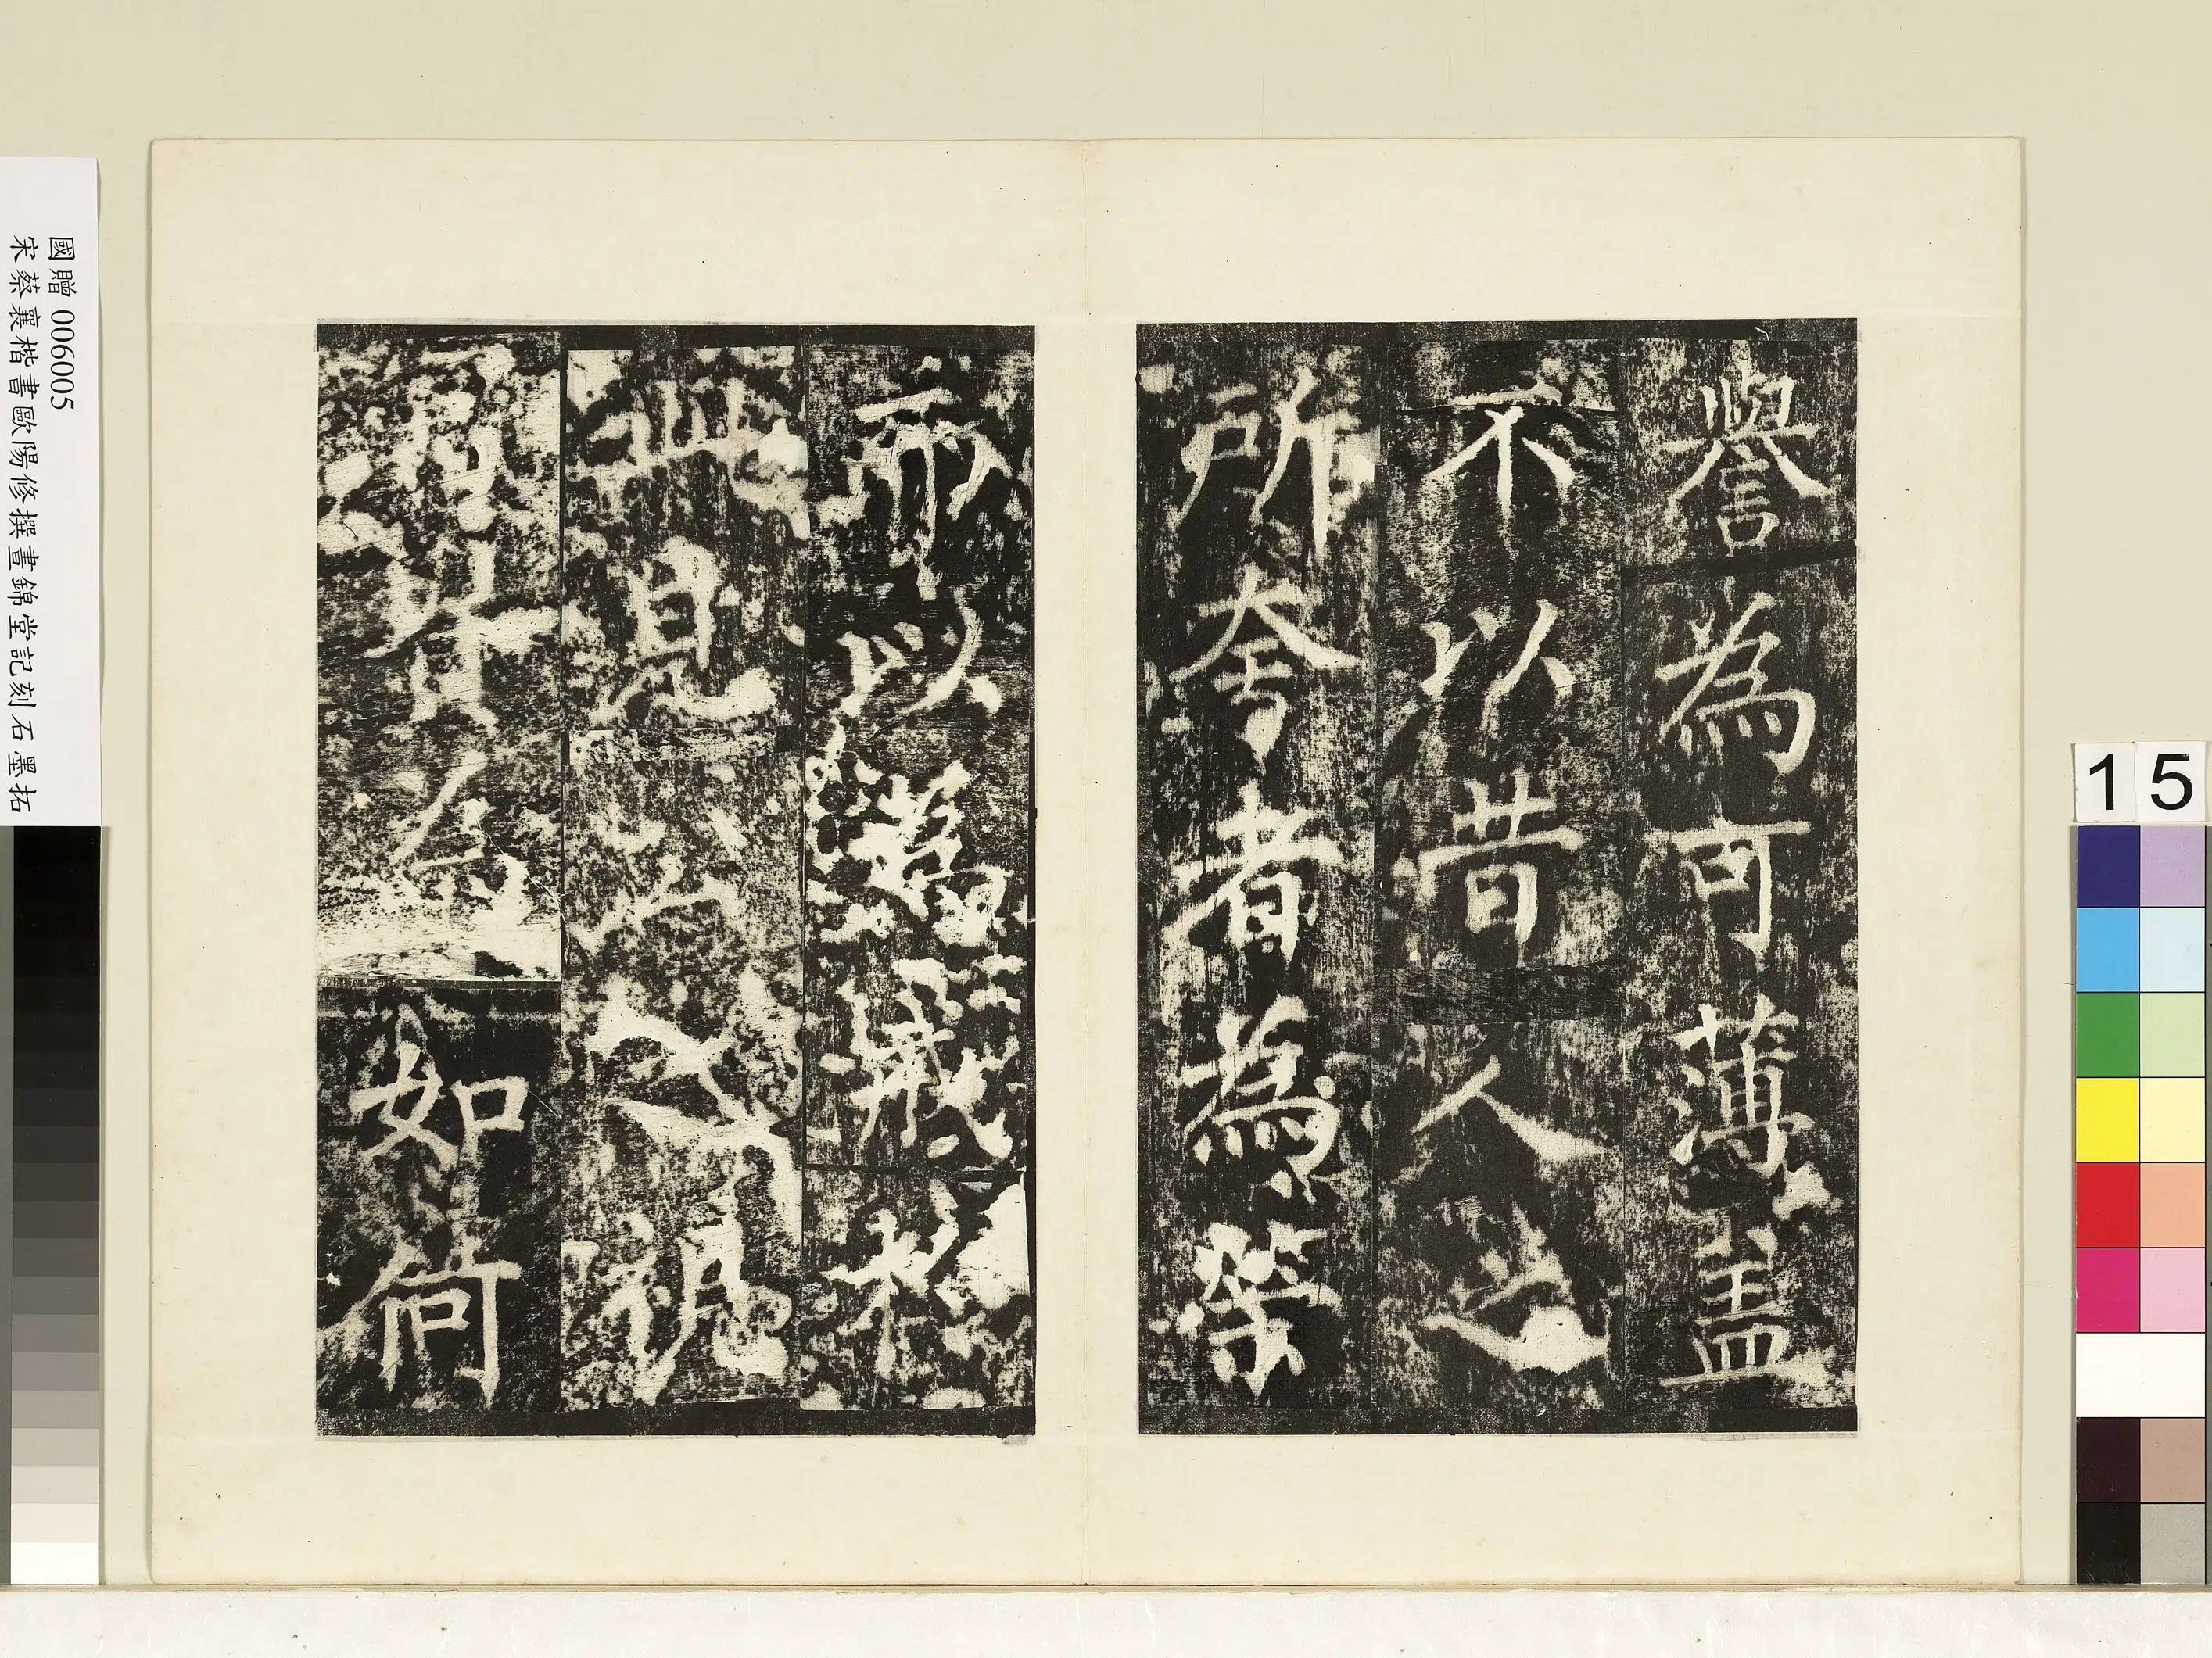 譽為可薄蓋
不以昔人之
所夸者為榮
而以為戒於
此見公之視
富貴為如何
國贈 006005
宋蔡襄楷書歐陽修撰晝錦堂記刻石墨拓
15